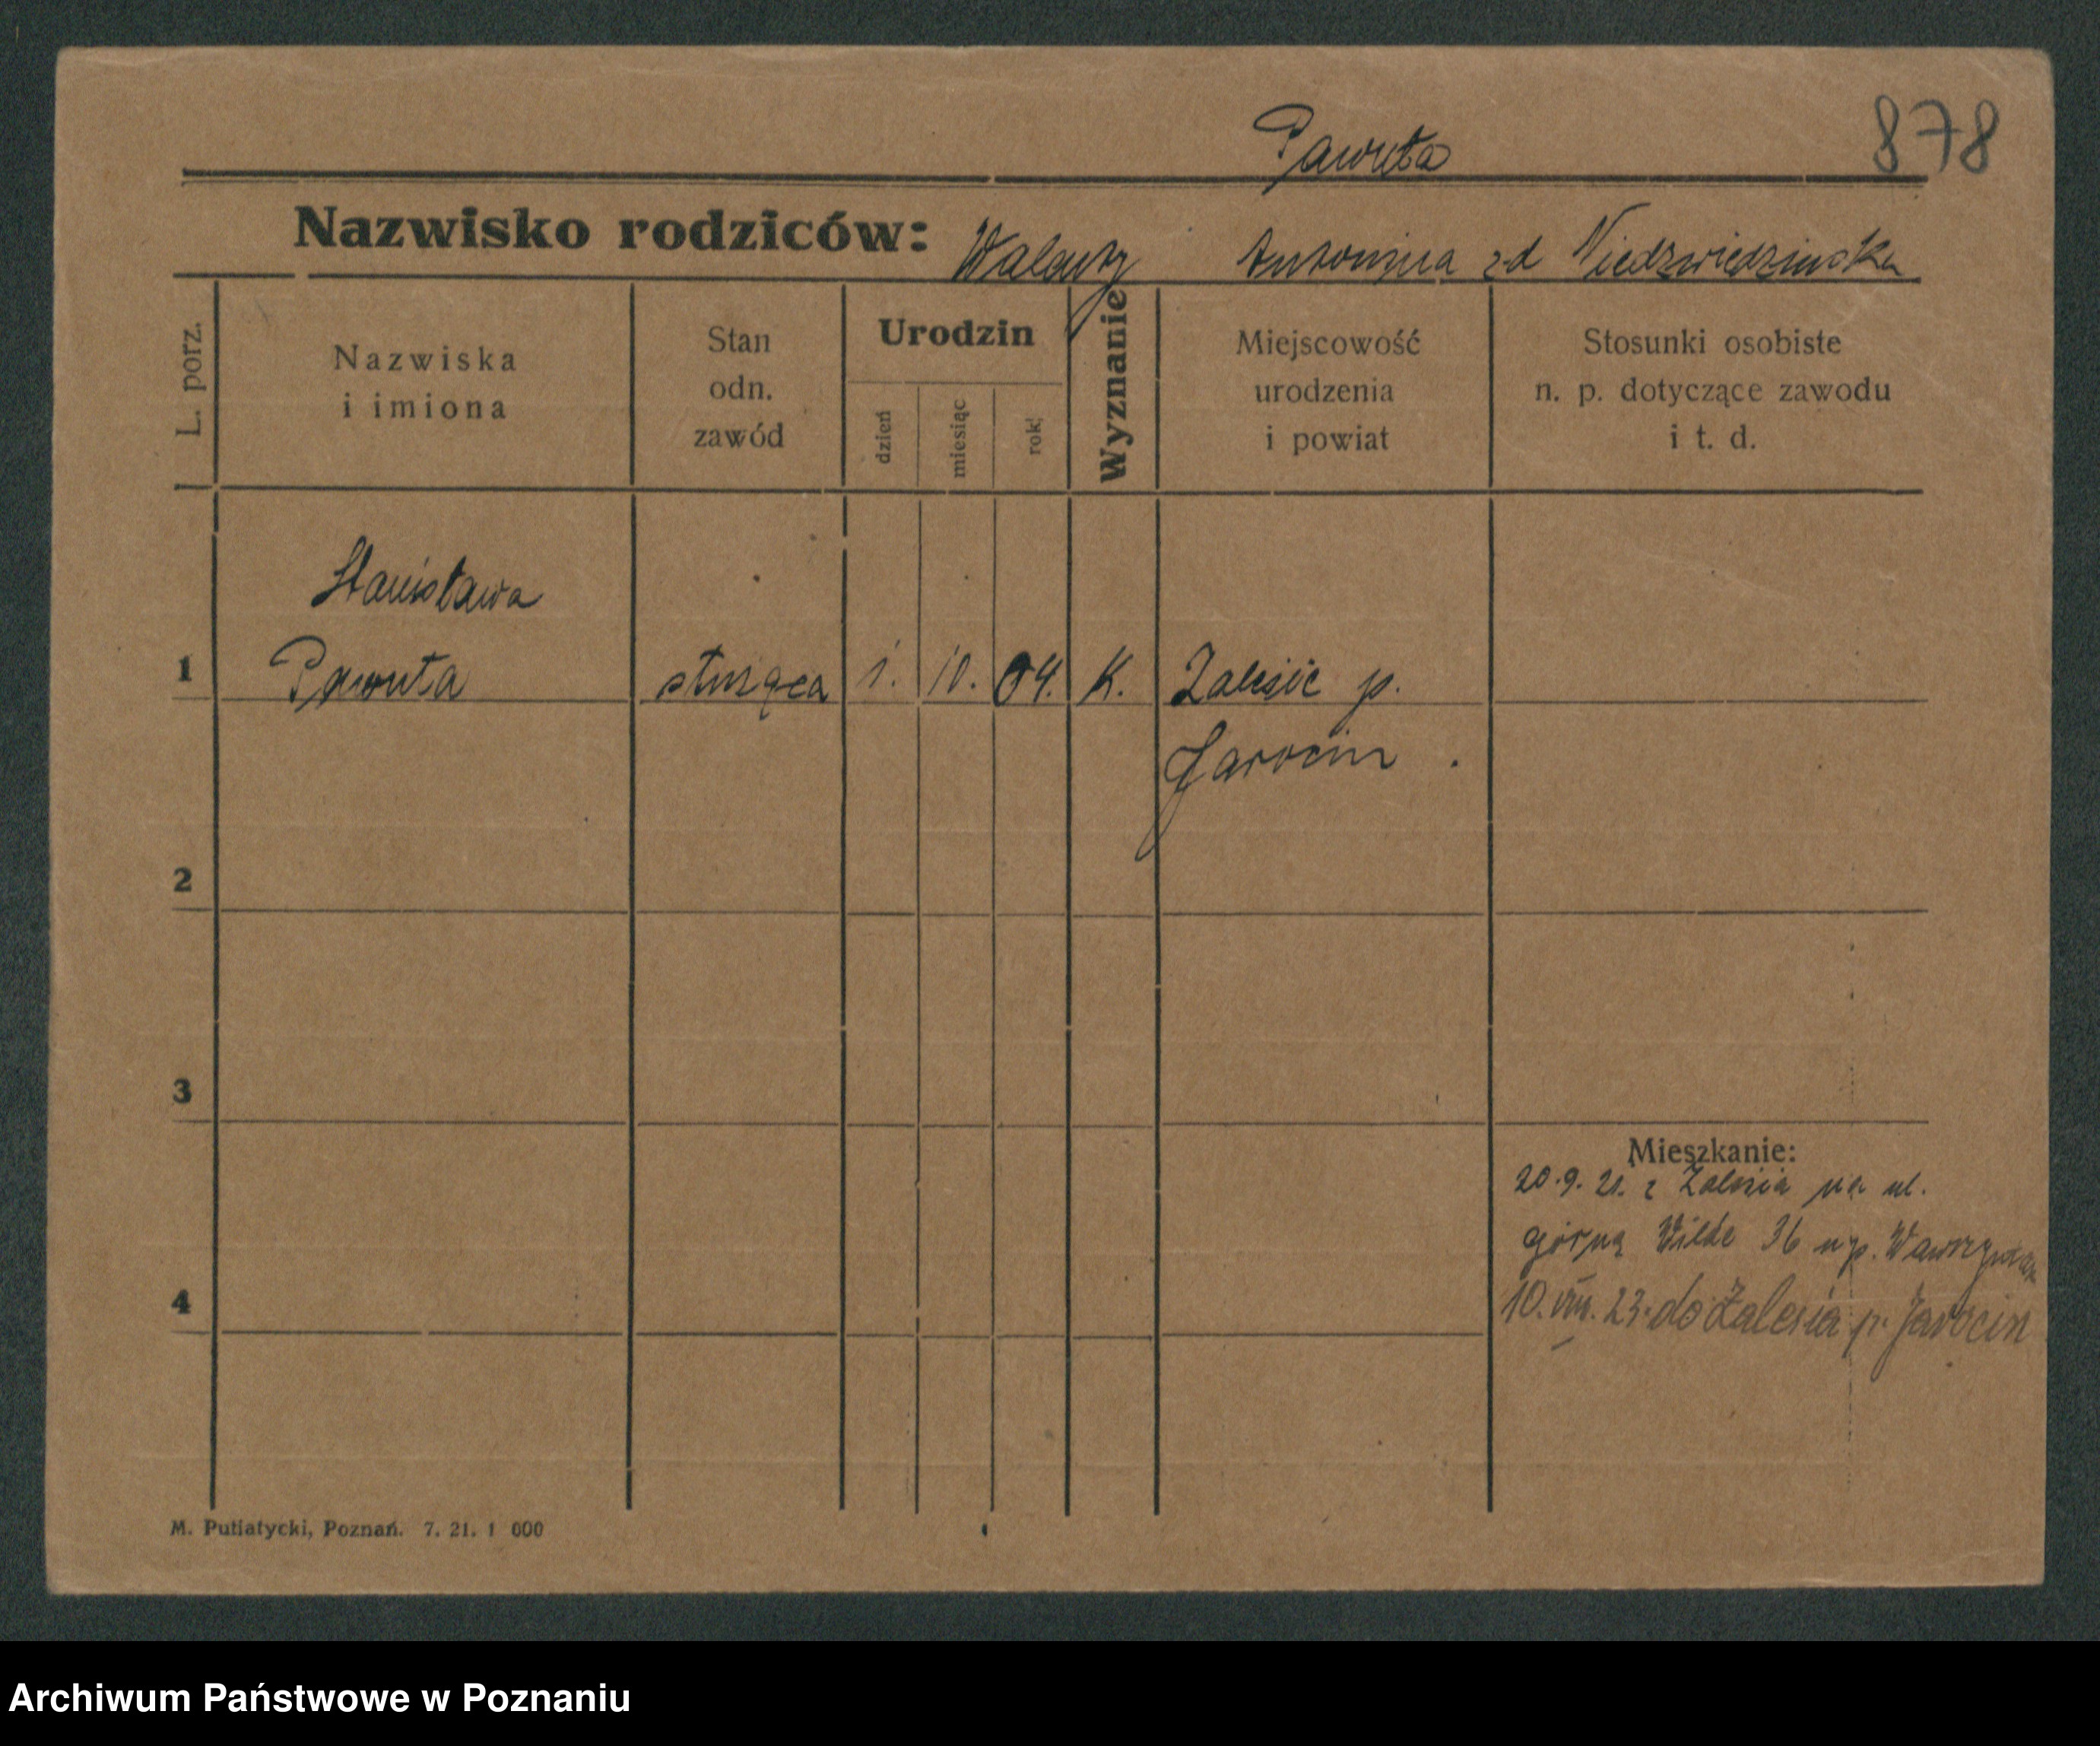 Pawuła
878
Nazwisko rodziców: Walenty Antonina z d Niedzwiedzinska
L. porz.
Nazwiska
i imiona
Stan
odn.
zawód
Urodzin
dzień
miesiąc
rok
Wyznanie
Miejscowość
urodzenia
i powiat
Stosunki osobiste
n. p. dotyczące zawodu
i t. d.
Stanisława
1 Pawuła służąca 1. 10. 04. K. Zalesie p.
Jarocin.
2
3
Mieszkanie:
20.9.21. z Zalesia na ul.
górną Wilde 36 u p.
4
10.VIII.23. do Zalesia p. Jarocin
M. Putiatycki, Poznań. 7. 21. 1 000
Archiwum Państwowe w Poznaniu